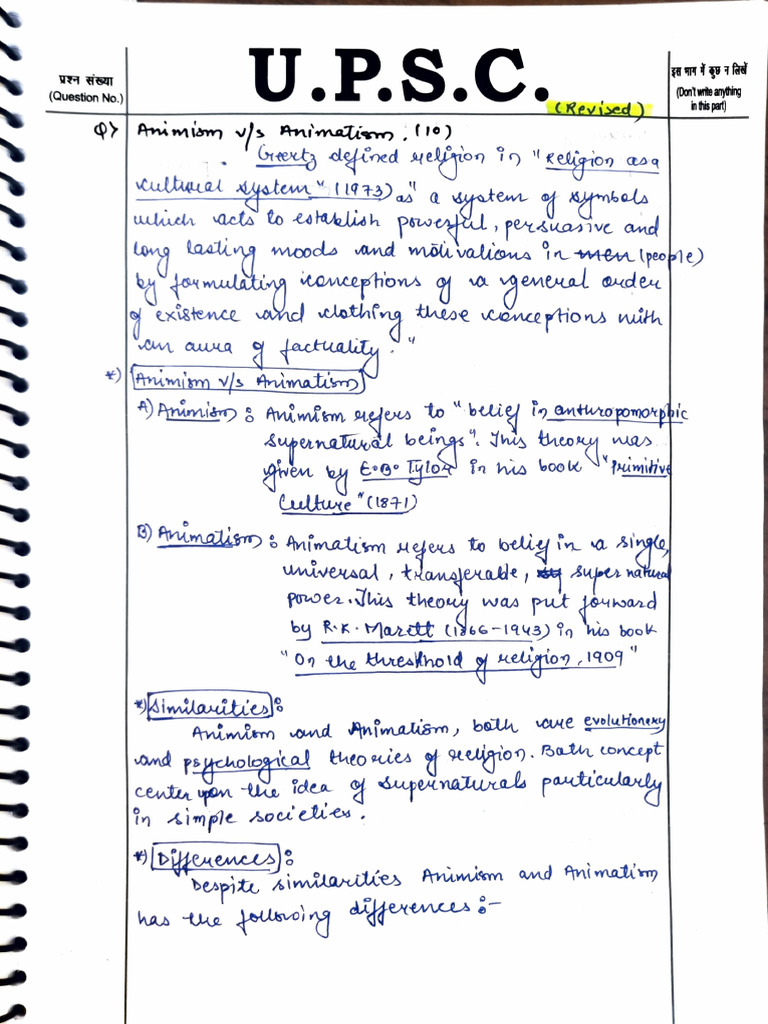 प्रश्न संख्या
(Question No.)
U.P.S.C.
इस भाग में कुछ न लिखें
(Don't write anything
in this part)
(Revised)
Q> Animism v/s Animatism. (10)
Geertz defined religion in "Religion as a
cultural system" (1973) as "a system of symbols
which acts to establish powerful, persuasive and
long lasting moods and motivations in men (people)
by formulating conceptions of a general order
of existence and clothing these conceptions with
an aura of factuality."
*) Animism v/s Animatism
A) Animism : Animism refers to "belief in anthropomorphic
supernatural beings". This theory was
given by E.B. Tylor in his book "Primitive
Culture" (1871)
B) Animatism : Animatism refers to belief in a single,
universal, transferable, super natural
power. This theory was put forward
by R.R. Marett (1866-1943) in his book
"On the threshold of religion, 1909"
*) Similarities :
Animism and Animatism, both are evolutionery
and psychological theories of religion. Both concept
center upon the idea of supernaturals particularly
in simple societies.
*) Differences :
Despite similarities Animism and Animatism
has the following differences :-